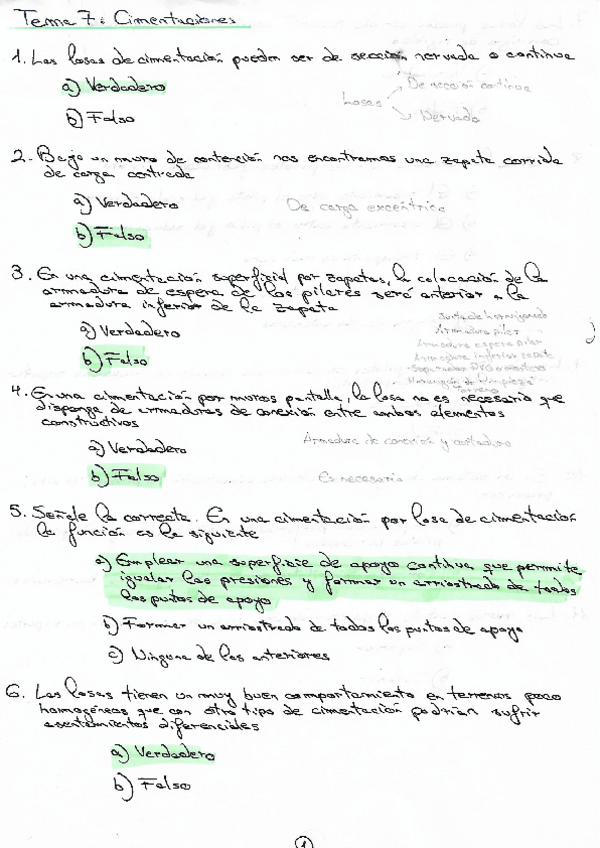 Tema 7: Cimentaciones
1. Las losas de cimentación pueden ser de sección nervada o continua
a) Verdadero
De sección continua
Losas
Nervada
b) Falso
2. Bajo un muro de contención nos encontramos una zapata corrida
de carga centrada
a) Verdadero
De carga excéntrica
b) Falso
3. En una cimentación superficial por zapatas, la colocación de la
armadura de espera de los pilares será anterior a la
armadura inferior de la zapata
a) Verdadero
b) Falso
Junta de hormigonado
Armadura pilar
Armadura espera pilar
Armadura inferior zapata
Hormigón de limpieza
terreno
4. En una cimentación por muros pantalla, la losa no es necesario que
disponga de armaduras de conexión entre ambos elementos
constructivos
a) Verdadero
Armadura de conexión y
b) Falso
Es necesario
5. Señale la correcta. En una cimentación por losa de cimentación
la función es la siguiente
a) Emplear una superficie de apoyo continua que permite
igualar las presiones y formar un arriostrado de todos
los puntos de apoyo
b) Formar un arriostrado de todos los puntos de apoyo
c) Ninguna de las anteriores
6. Las losas tienen un muy buen comportamiento en terrenos poco
homogéneos que con otro tipo de cimentación podrían sufrir
asentamientos diferenciales
a) Verdadero
b) Falso
1